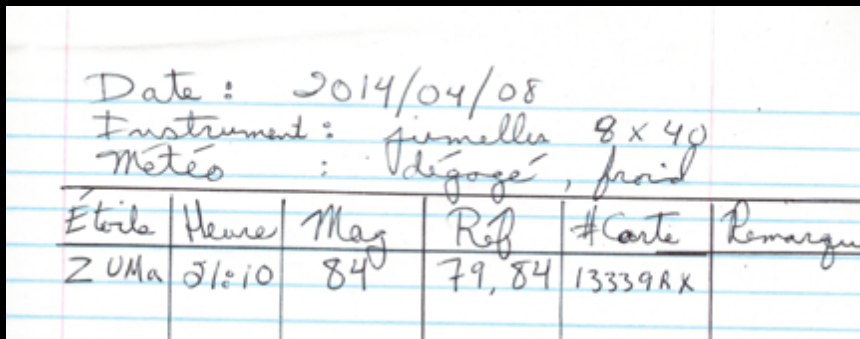 Date : 2014/04/08
Instrument : jumelles 8 x 40
Météo : dégagé, froid
Étoile Heure Mag Réf #Carte Remarqu
Z UMa 21:10 84 79, 84 13339RX